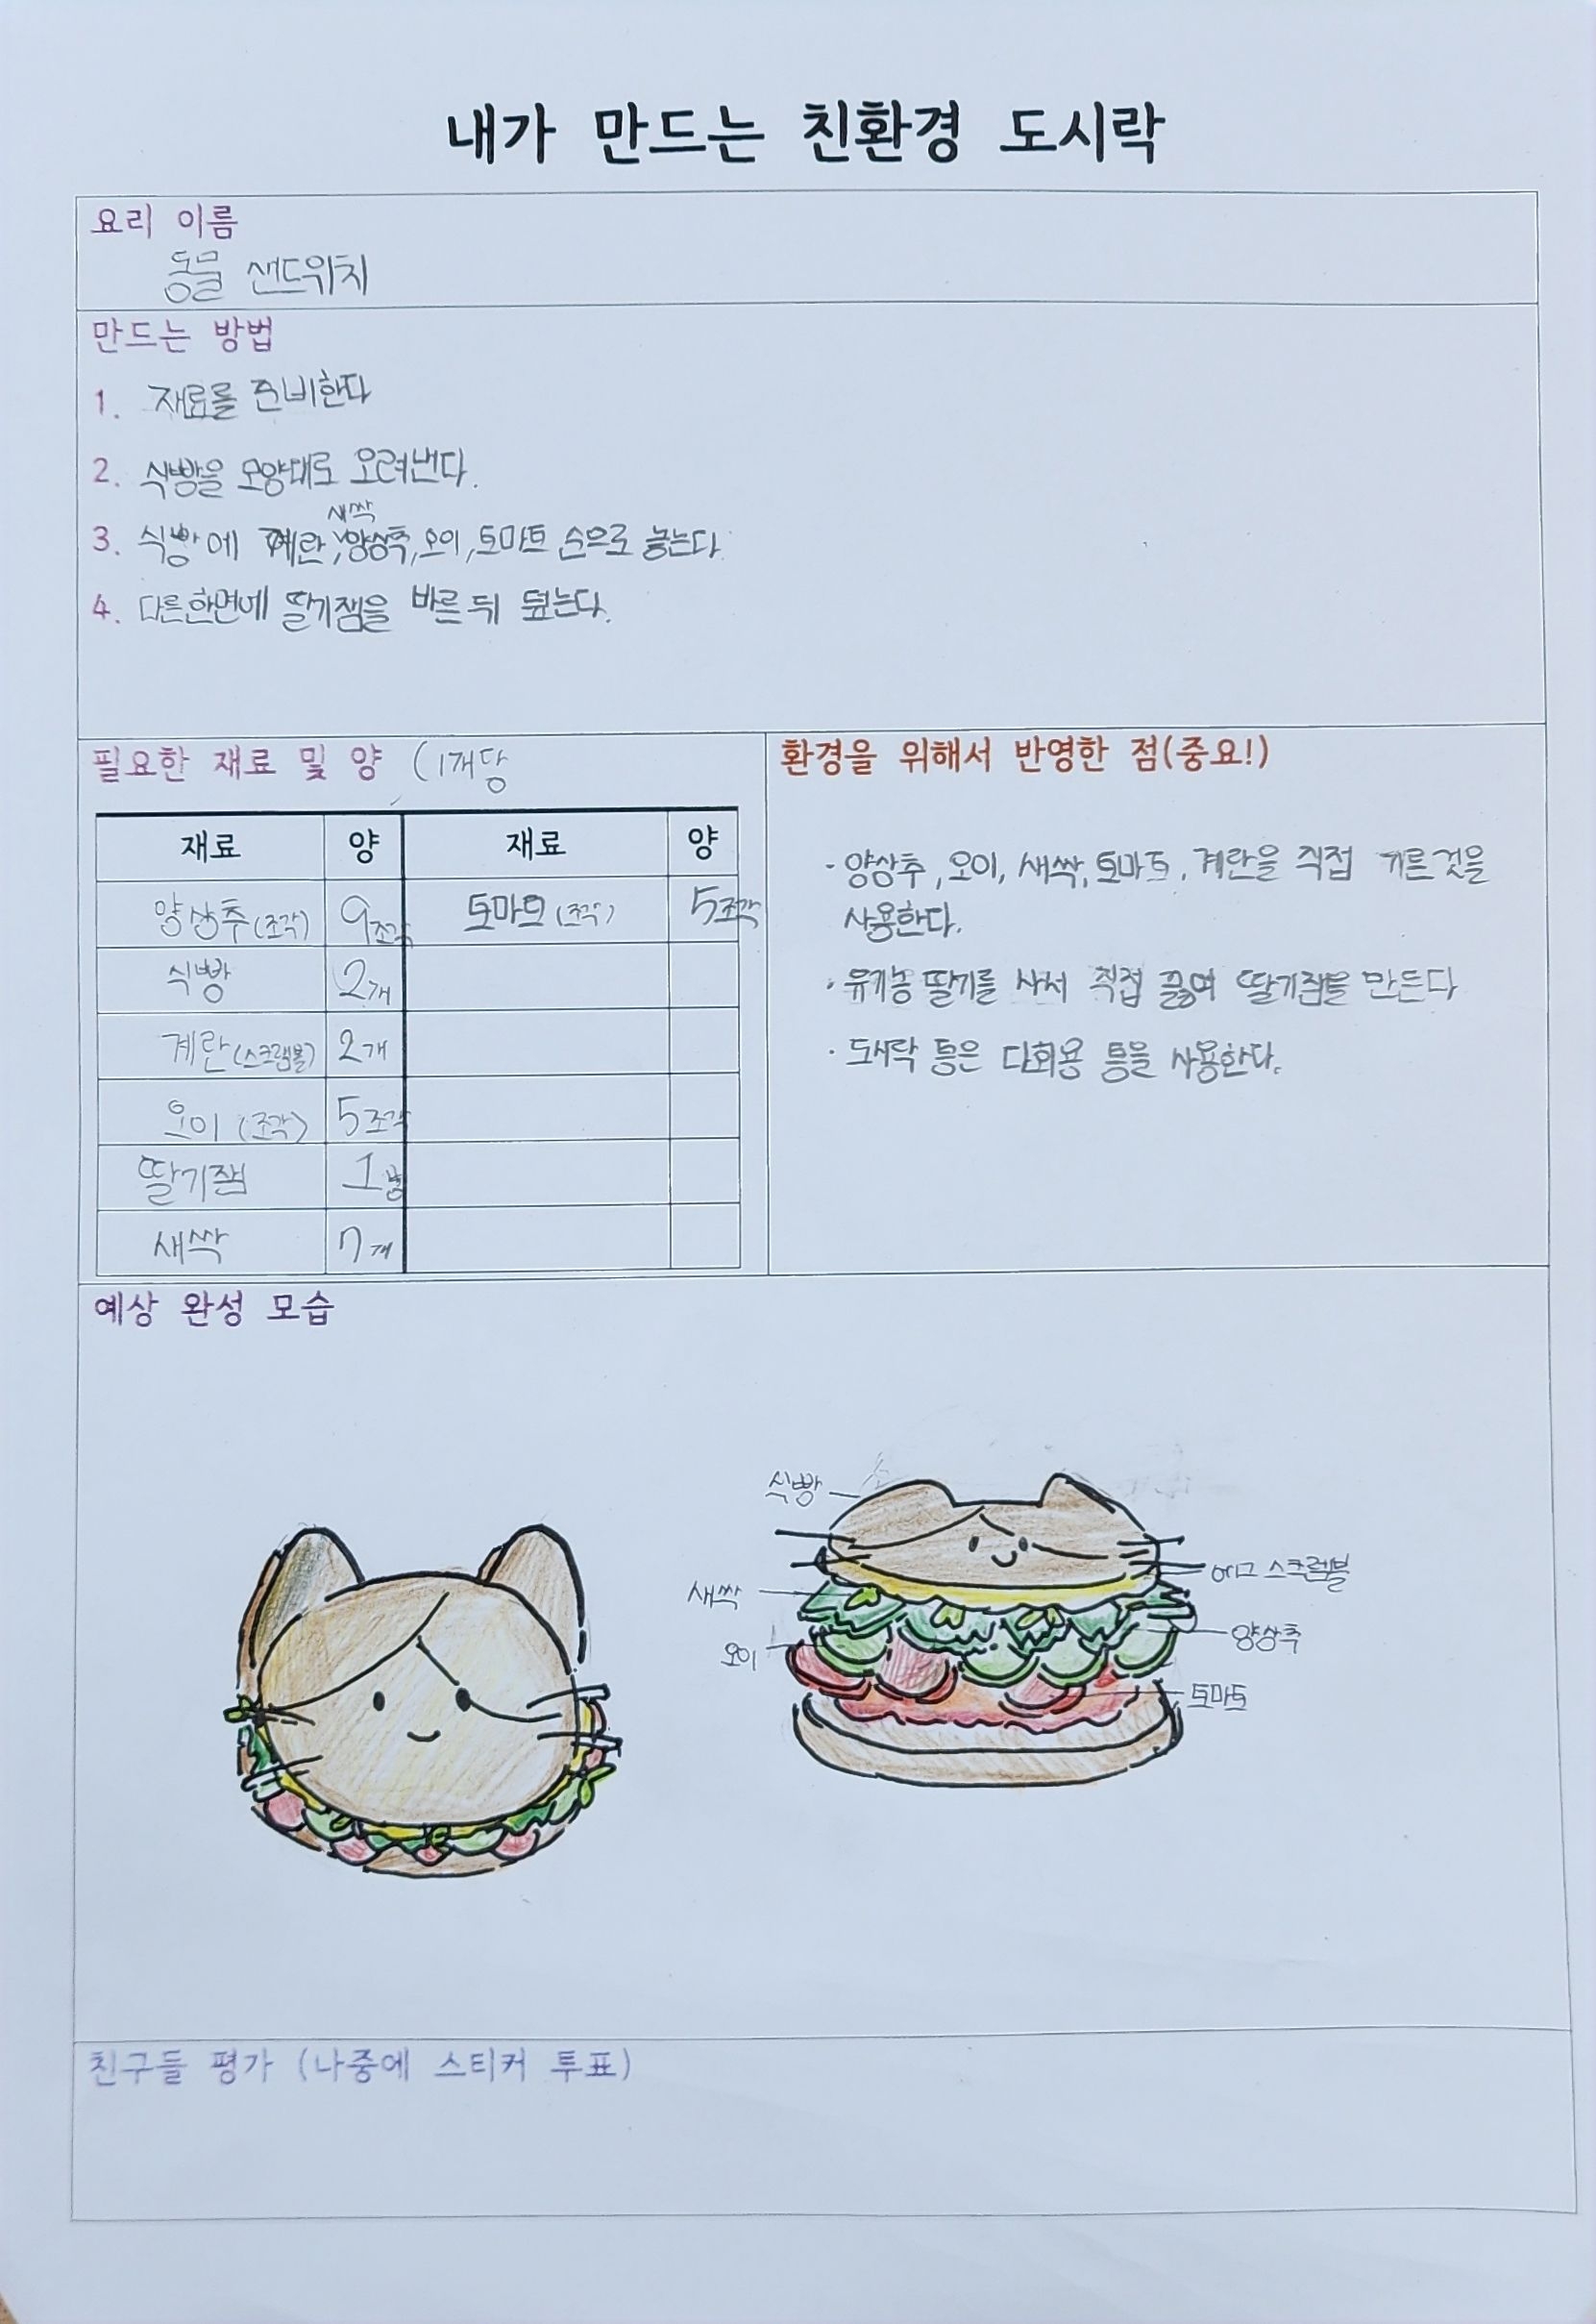 내가 만드는 친환경 도시락
요리 이름
동물 샌드위치
만드는 방법
1. 재료를 준비한다
2. 식빵을 모양대로 오려낸다.
새싹
3. 식빵에 계란, 양상추, 오이, 토마토 순으로 놓는다.
4. 다른한면에 딸기잼을 바른 뒤 덮는다.
필요한 재료 및 양 (1개당
재료 양 재료 양
양상추(조각) 9조각 토마토(조각) 5조각
식빵 2개
계란(스크램블) 2개
오이 (조각) 5조각
딸기잼 1
새싹 7개
환경을 위해서 반영한 점(중요!)
· 양상추, 오이, 새싹, 토마토, 계란을 직접 기른 것을
사용한다.
· 유기농 딸기를 사서 직접 끓여 딸기잼을 만든다
· 도시락 통은 다회용 통을 사용한다.
예상 완성 모습
식빵
에그 스크램블
새싹
양상추
오이
토마토
친구들 평가 (나중에 스티커 투표)